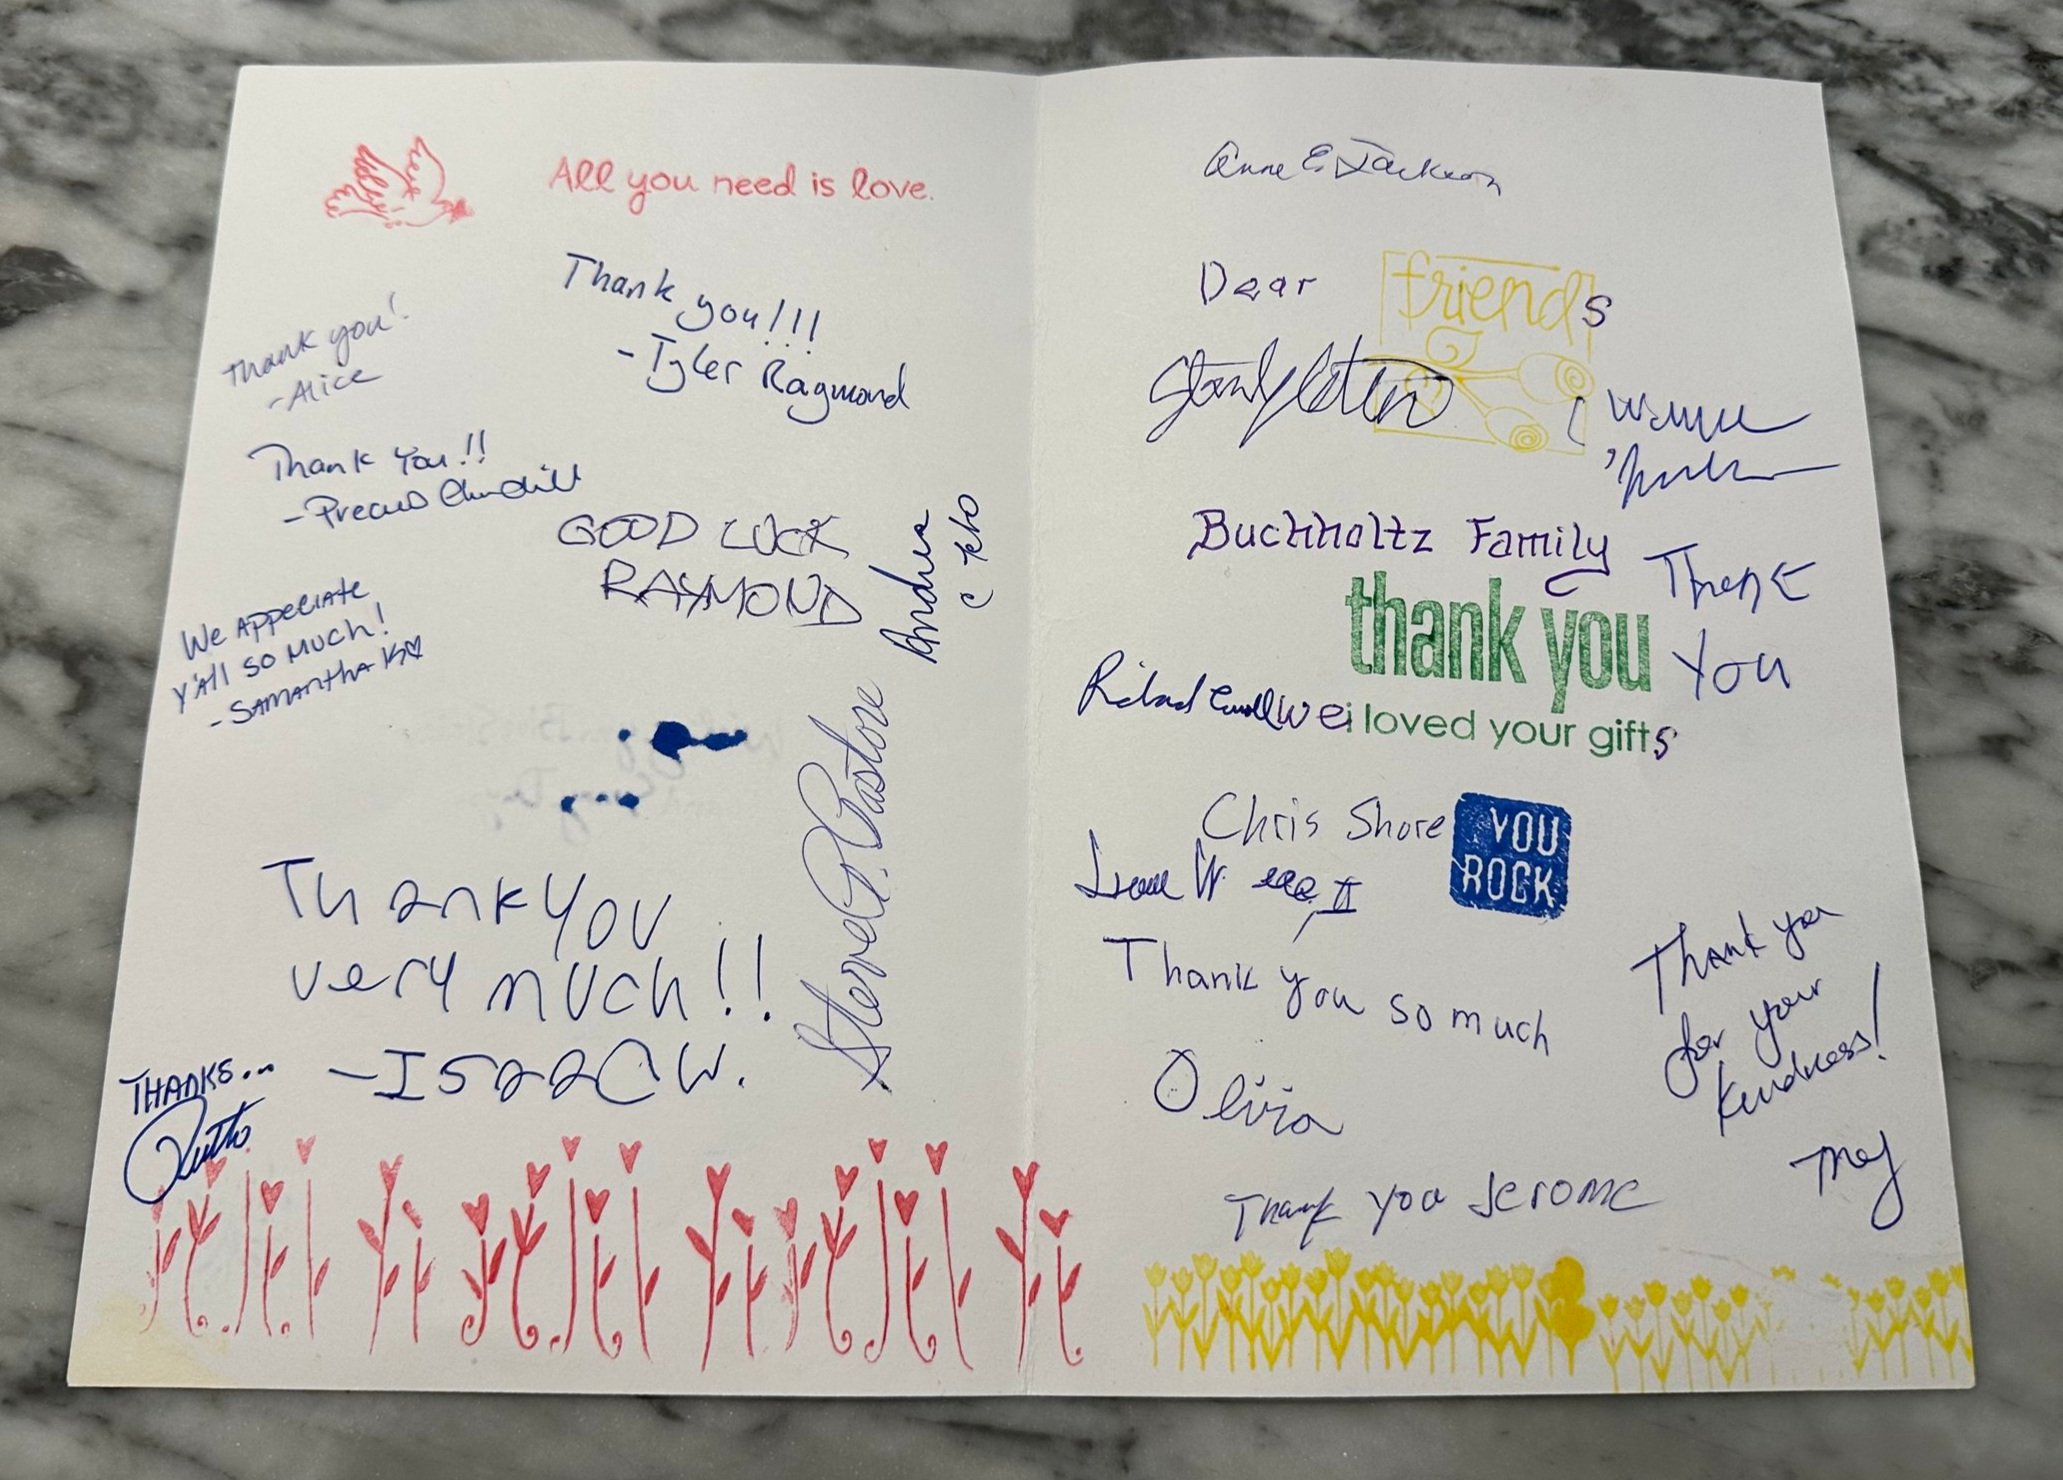 All you need is love.
Thank you!
-Alice
Thank you!!!
- Tyler Raymond
Thank You!!
-
GOOD LUCK
RAYMOND
Andrea
We Appeciate
y'all so much!
-Samantha K♡
Steven P. Pastore
Thank you
very much!!
-Isaac W.
THANKS...
Anne E. Jackson
Dear friends
Buchholtz Family
thank you
Thank
You
Richard
we i loved your gifts
Chris Shore
YOU
ROCK
W II
Thank you so much
Olivia
Thank you
for your
Kindness!
Thank you Jerome